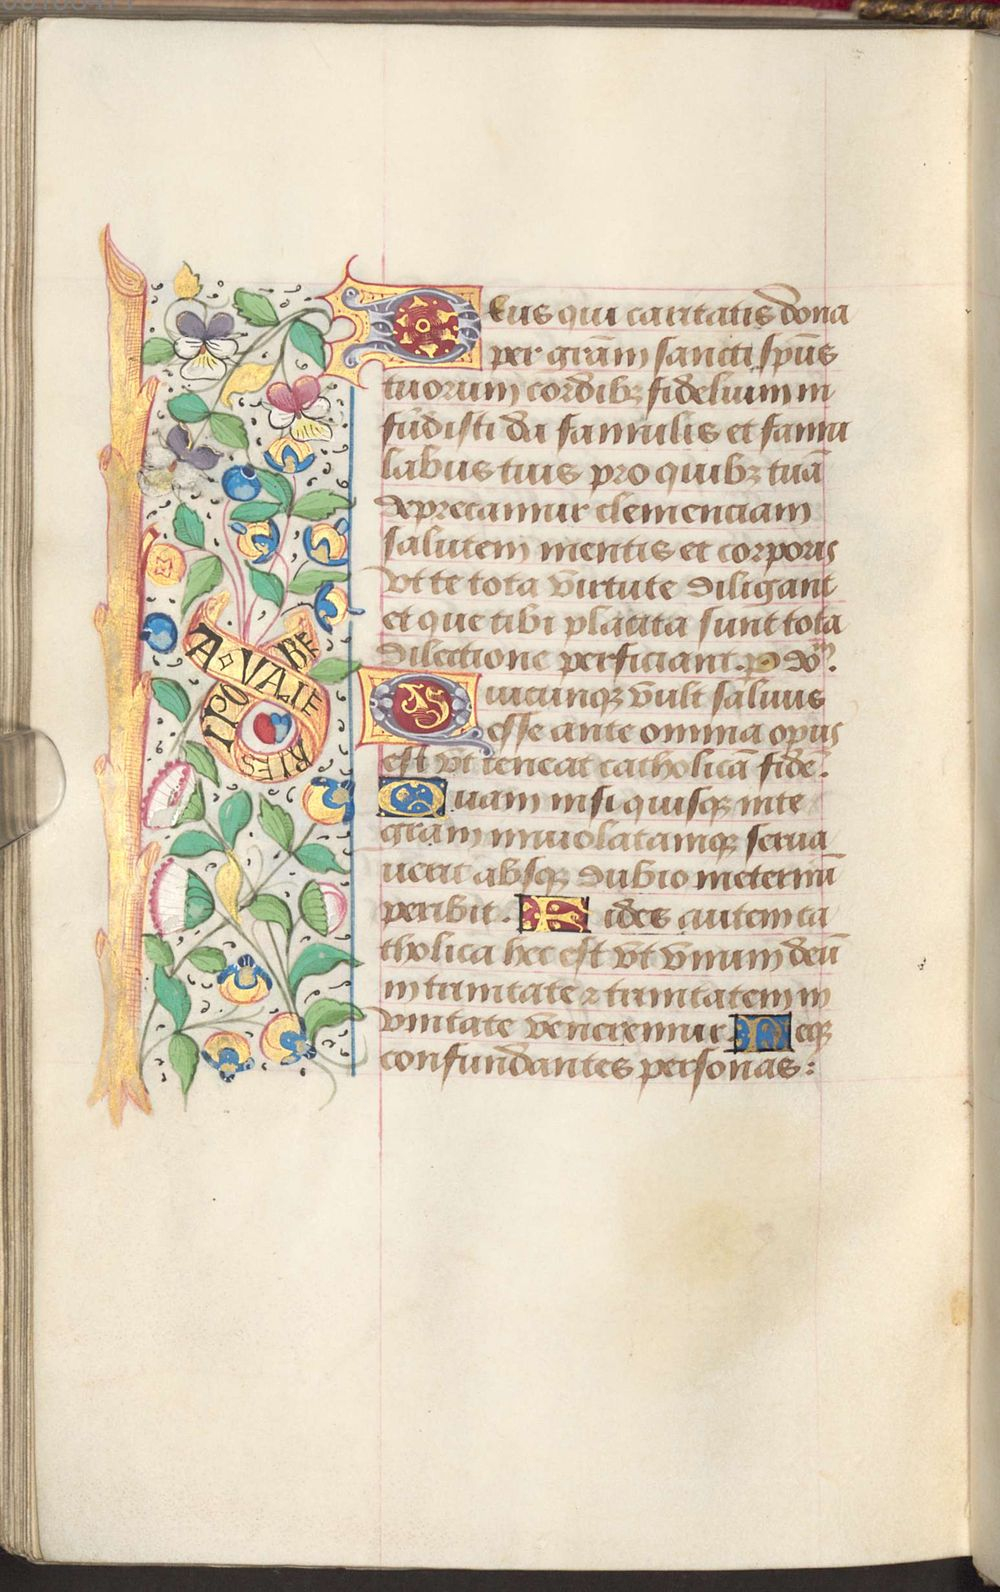 Deus qui caritatis dona
per grām sancti spūs
tuorum cordibꝫ fidelium in
fūdisti da famulis et famu
labus tuis pro quibꝫ tuā
deprecamur clemenciam
salutem mentis et corporis
vt te tota virtute diligant
et que tibi placita sunt tota
dilectione perficiant. p do
Quicunqꝫ vult saluus
esse ante omnia opus
est vt teneat catholicā fidē.
Quam nisi quisqꝫ inte
gram inuiolatamqꝫ serua
uerit absqꝫ dubio ineternū
peribit. Fides autem ca
tholica hec est vt vnum deū
in trinitate ⁊ trinitatem in
vnitate veneremur. Neqꝫ
confundantes personas:
A VALE